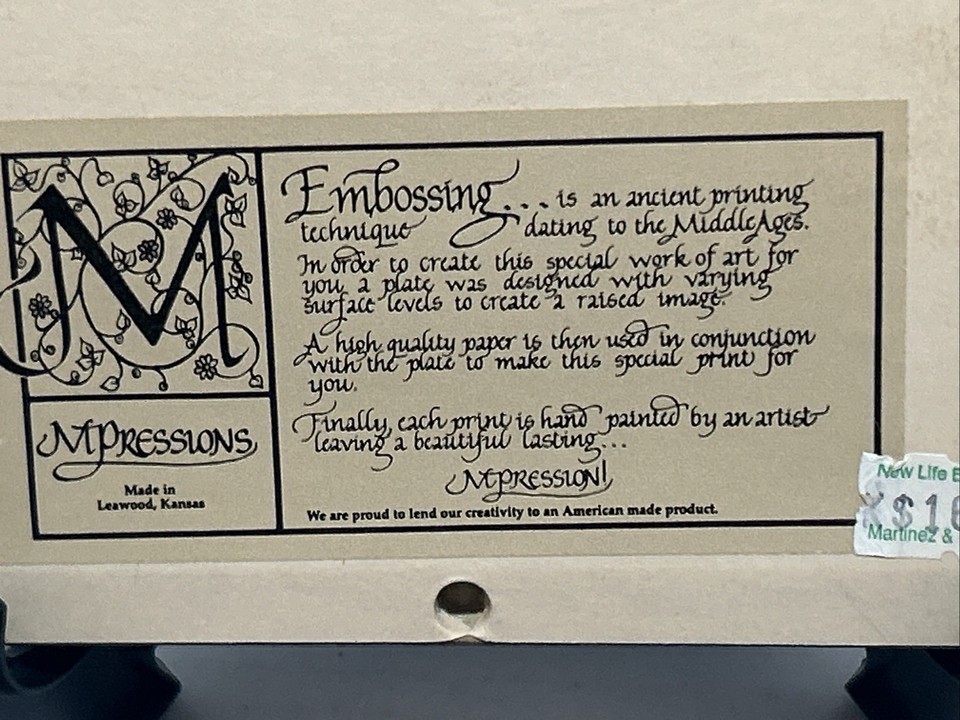 M
MPRESSIONS
Made in
Leawood, Kansas
Embossing... is an ancient printing
technique dating to the Middle Ages.
In order to create this special work of art for
you a plate was designed with varying
surface levels to create a raised image.
A high quality paper is then used in conjunction
with the plate to make this special print for
you.
Finally, each print is hand painted by an artist
leaving a beautiful lasting...
MPRESSION!
We are proud to lend our creativity to an American made product.
New Life
$1
Martinez &